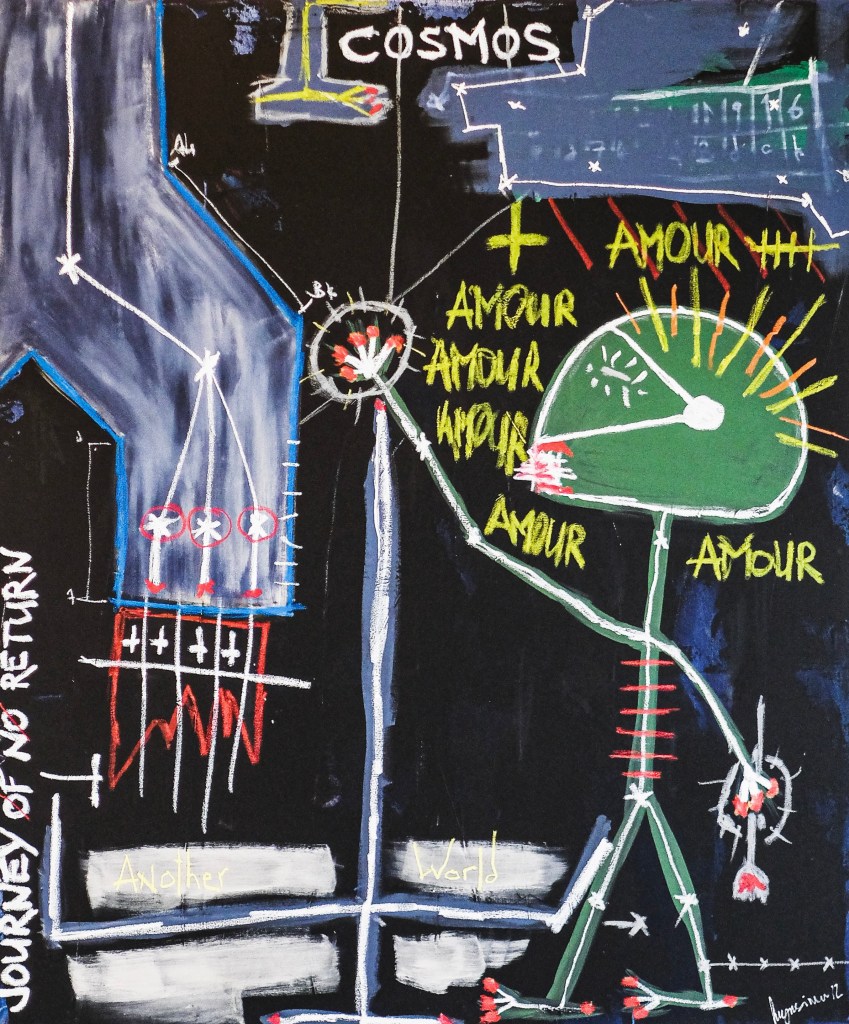 COSMOS
AMOUR
AMOUR
AMOUR
AMOUR
AMOUR
AMOUR
JOURNEY OF NO RETURN
Another World